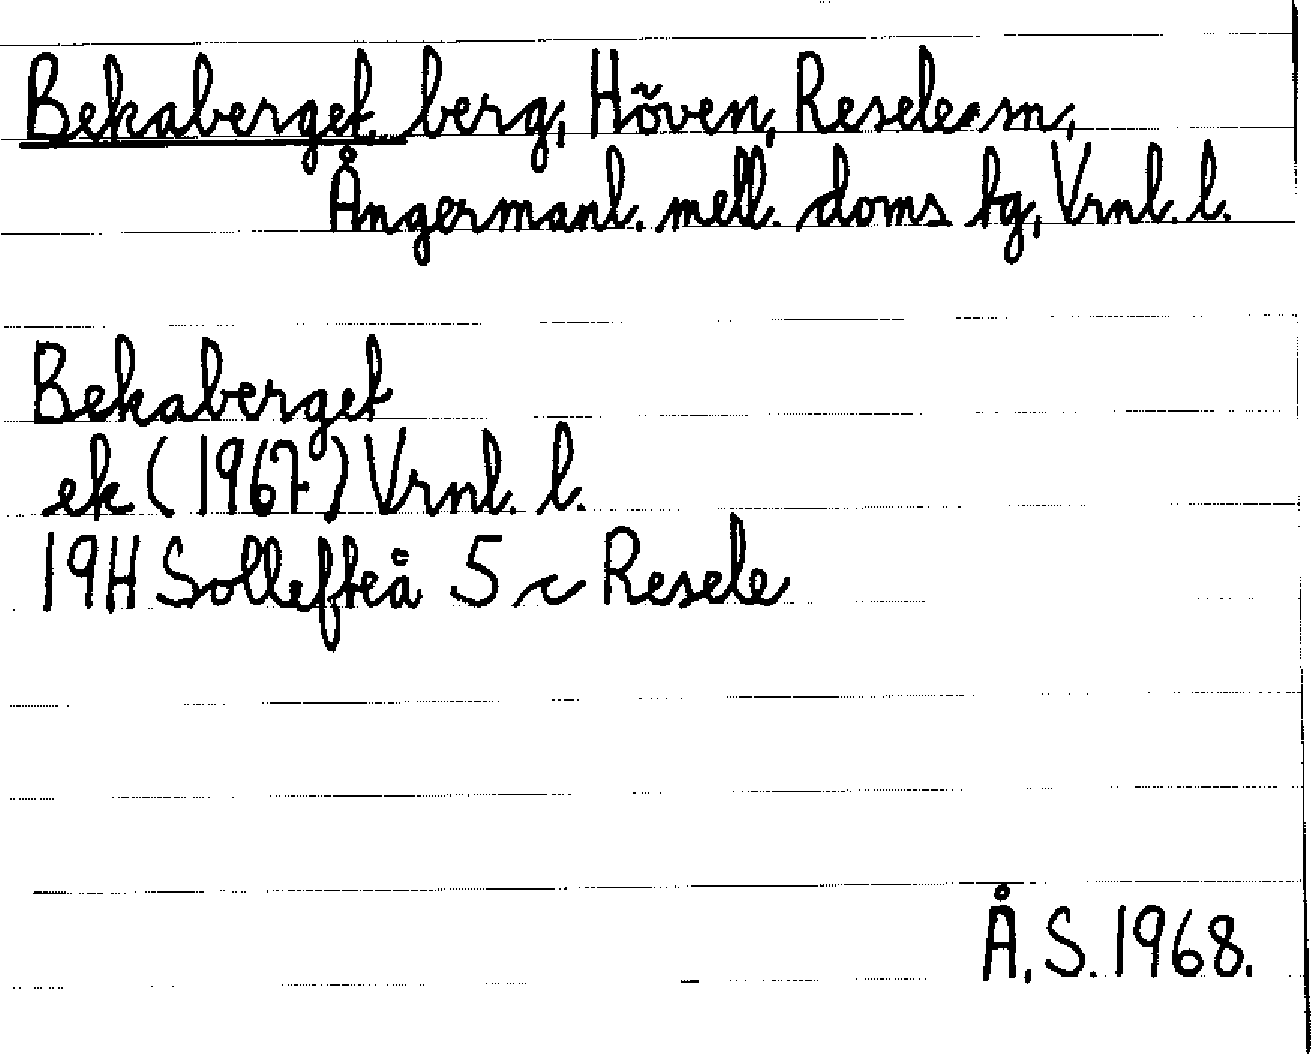 Bekaberget, berg, Höven, Resele sm,
Ångermanl. mell. doms tg, Vrnl. l.
Bekaberget
ek (1967) Vrnl. l.
19H Sollefteå 5 c Resele
Å. S. 1968.